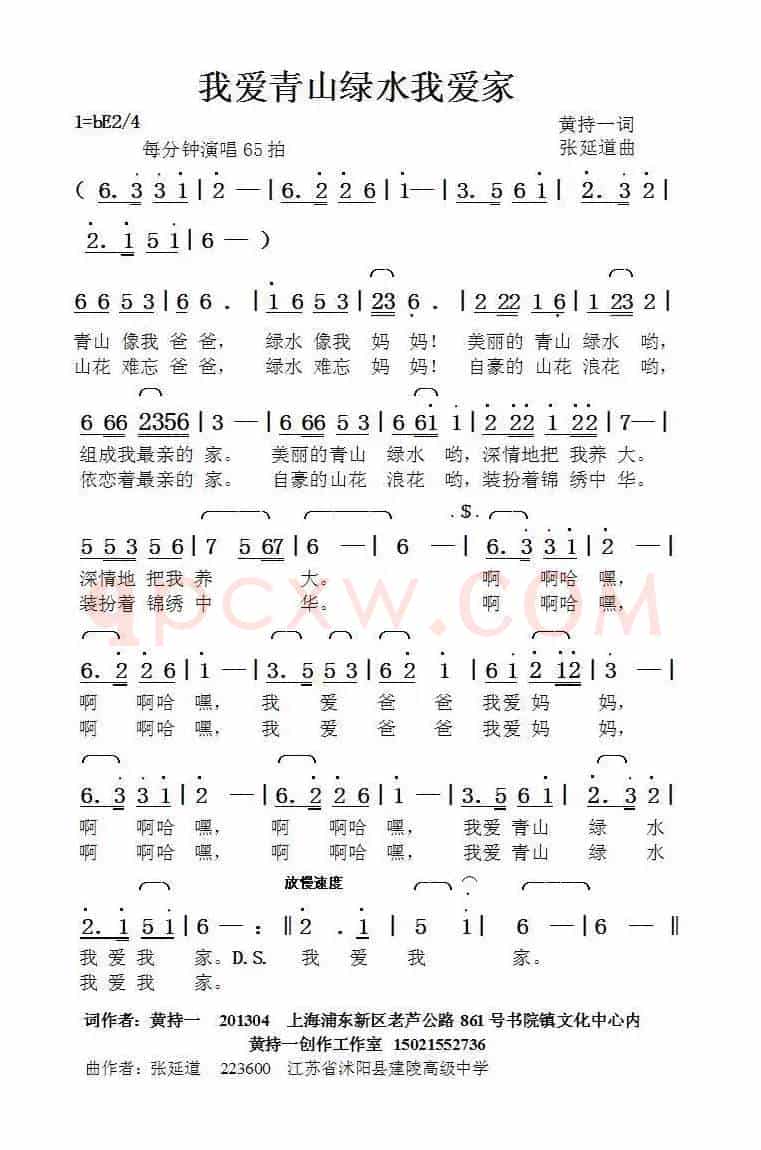 我爱青山绿水我爱家
1=bE2/4
黄持一词
每分钟演唱65拍
张延道曲
( 6. 3 3 1 | 2 — | 6. 2 2 6 | 1 — | 3. 5 6 1 | 2. 3 2 |
2. 1 5 1 | 6 — )
6 6 5 3 | 6 6 . | 1 6 5 3 | 23 6 . | 2 22 1 6 | 1 23 2 |
青山 像我 爸 爸， 绿水 像我 妈 妈！ 美丽的 青山 绿水 哟，
山花 难忘 爸 爸， 绿水 难忘 妈 妈！ 自豪的 山花 浪花 哟，
6 66 2356 | 3 — | 6 66 5 3 | 6 61 1 | 2 22 1 22 | 7 — |
组成我最亲的 家。 美丽的青山 绿水 哟，深情地把 我养 大。
依恋着最亲的 家。 自豪的山花 浪花 哟，装扮着锦 绣中 华。
.$.
5 53 5 5 | 7 5 67 | 6 — | 6 — | 6. 3 3 1 | 2 — |
深情地 把我 养 大。 啊 啊哈 嘿，
装扮着 锦绣 中 华。 啊 啊哈 嘿，
qpcxw.COM
6. 2 2 6 | 1 — | 3. 5 5 3 | 6 2 1 | 6 1 2 12 | 3 — |
啊 啊哈 嘿， 我 爱 爸 爸 我爱 妈 妈，
啊 啊哈 嘿， 我 爱 爸 爸 我爱 妈 妈，
6. 3 3 1 | 2 — | 6. 2 2 6 | 1 — | 3. 5 6 1 | 2. 3 2 |
啊 啊哈 嘿， 啊 啊哈 嘿， 我爱 青山 绿 水
啊 啊哈 嘿， 啊 啊哈 嘿， 我爱 青山 绿 水
放慢速度
2. 1 5 1 | 6 — : ‖ 2 . 1 | 5 1 | 6 — | 6 — ‖
我 爱 我 家。D.S. 我 爱 我 家。
我 爱 我 家。
词作者：黄持一 201304 上海浦东新区老芦公路 861 号书院镇文化中心内
黄持一创作工作室 15021552736
曲作者：张延道 223600 江苏省沭阳县建陵高级中学